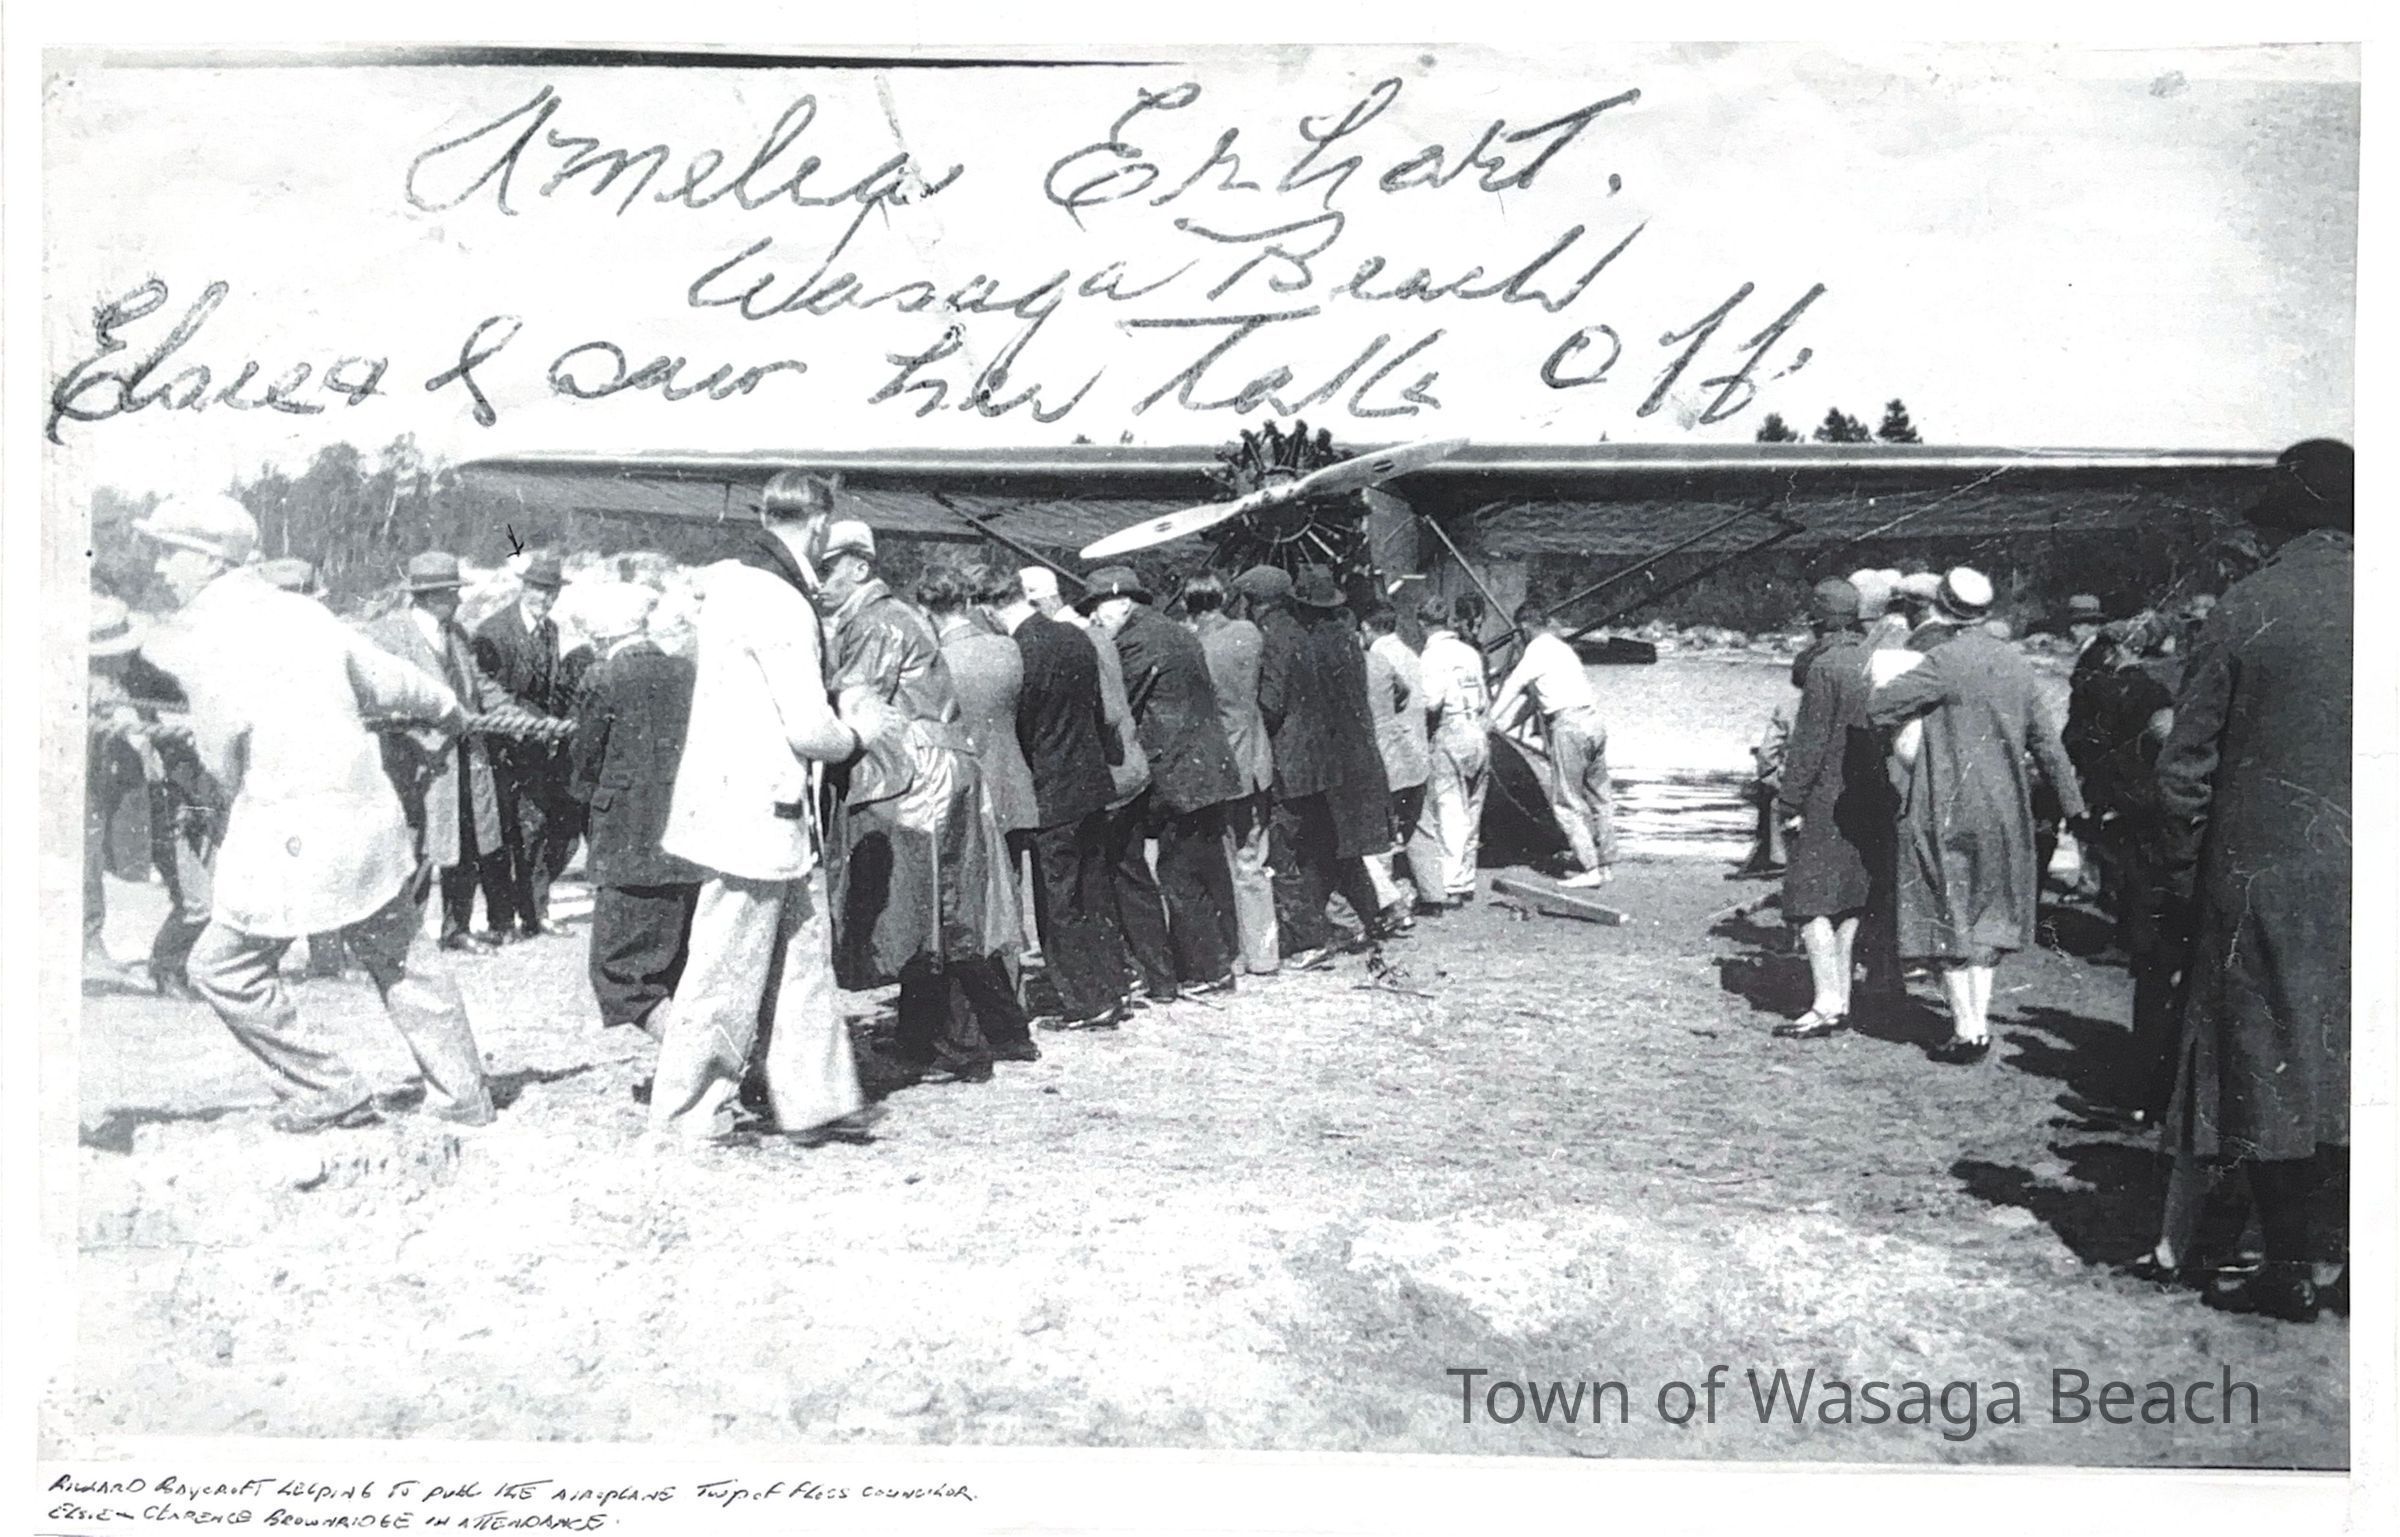 Amelia Erhart.
Wasaga Beach
Elsie & I saw her Take Off.
Town of Wasaga Beach
RICHARD BAYCROFT HELPING TO PULL THE AIROPLANE TWP OF FLOS COUNCILOR.
ELSIE - CLARENCE BROWNRIDGE IN ATTENDANCE.